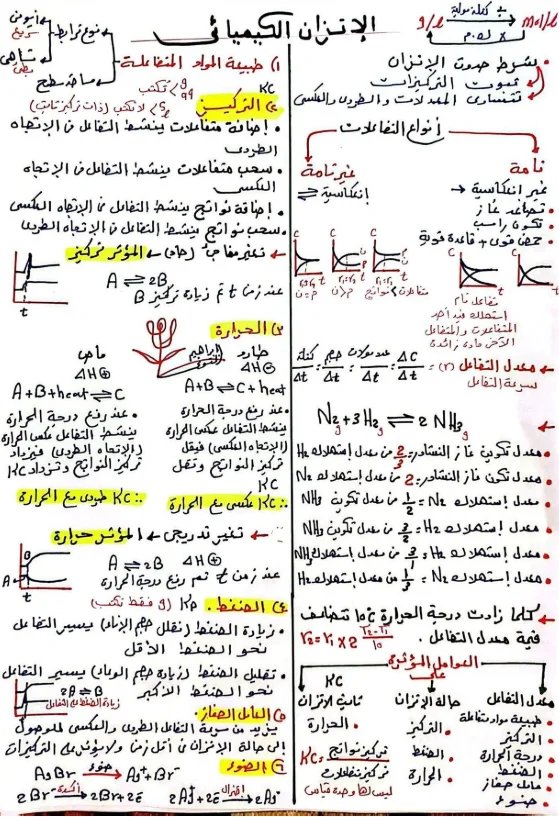 الإتزان الكيميائي
g/L mol/L
÷ كتلة مولية
بشرط حدوث الإتزان
ثبوت التركيزات
تتساوى المعدلات والطردى والعكسى
أنواع التفاعلات
تامة
غير انعكاسية →
تصاعد غاز
تكون راسب
حمض قوى + قاعدة قوية
غير تامة
إنعكاسية ⇌
C C C C C
t t t t t
تفاعل تام
استهلاك
المتفاعلات والمتفاعل
الآخر مادة زائدة
← معدل التفاعل (r) = كتلة/Δt = حجم/Δt = عدد مولات/Δt = ΔC/Δt
سرعة التفاعل
N₂g + 3H₂g ⇌ 2NH₃g
معدل تكوين غاز النشادر = 2/3 من معدل استهلاك H₂
معدل تكوين غاز النشادر = 2 من معدل استهلاك N₂
معدل إستهلاك N₂ = 1/2 من معدل تكوين NH₃
معدل إستهلاك H₂ = 3/2 من معدل تكوين NH₃
معدل إستهلاك N₂ = 1/3 من معدل إستهلاك H₂
← كلما زادت درجة الحرارة 10°C تتضاعف
قيمة معدل التفاعل.
r₂ = r₁ × 2 T₂-T₁/10
العوامل المؤثرة
على
معدل التفاعل
طبيعة مواد متفاعلة
التركيز
درجة الحرارة
الضغط
عامل حفاز
ضوء
حالة الإتزان
التركيز
الضغط
الحرارة
KC
ثابت الاتزان
الحرارة
KC = تركيز نواتج / تركيز متفاعلات
ليس لها وحدة قياس
١) طبيعة المواد المتفاعلة
نوع ترابط
أيونى
سريع
تساهمى
بطئ
مساحة سطح
٢) التركيز
KC
تكتب
لا تكتب (ذات تركيز ثابت)
إضافة متفاعلات ينشط التفاعل فى الإتجاه
الطردى
سحب متفاعلات ينشط التفاعل فى الإتجاه
العكسى
إضافة نواتج ينشط التفاعل فى الإتجاه العكسى
سحب نواتج ينشط التفاعل فى الإتجاه الطردى
← تغير مفاجئ (حاد) ← المؤثر تركيز
A ⇌ 2B
عند زمن t تم زيادة تركيز B
t
٣) الحرارة
طارد
ΔH⊖
A+B ⇌ C + heat
عند رفع درجة الحرارة
ينشط التفاعل عكس الحرارة
(الإتجاه العكسى) فيقل
تركيز النواتج وتقل
KC
∴ KC عكسى مع الحرارة
ماص
ΔH⊕
A+B+heat ⇌ C
عند رفع درجة الحرارة
ينشط التفاعل عكس الحرارة
(الإتجاه الطردى) فيزداد
تركيز النواتج وتزداد KC
∴ KC طردى مع الحرارة
← تغير تدريجى ← المؤثر حرارة
A ⇌ 2B ΔH⊕
عند زمن t تم رفع درجة الحرارة
B
A
t
٤) الضغط. KP (g فقط تكتب)
زيادة الضغط (تقلل حجم الإناء) يسير التفاعل
نحو الضغط الأقل
تقليل الضغط (زيادة حجم الوعاء) يسير التفاعل
نحو الضغط الأكبر
2A ⇌ B
زيادة الضغط على التفاعل
٥) العامل الحفاز:
يزيد من سرعة التفاعل الطردى والعكسى للوصول
إلى حالة الإتزان فى أقل زمن ولا يؤثر على التركيزات
٦) الضوء
AgBr ضوء→ Ag⁺ + Br⁻
2Br⁻ أكسدة→ 2Br + 2e
2Ag⁺ + 2e إختزال→ 2Ag